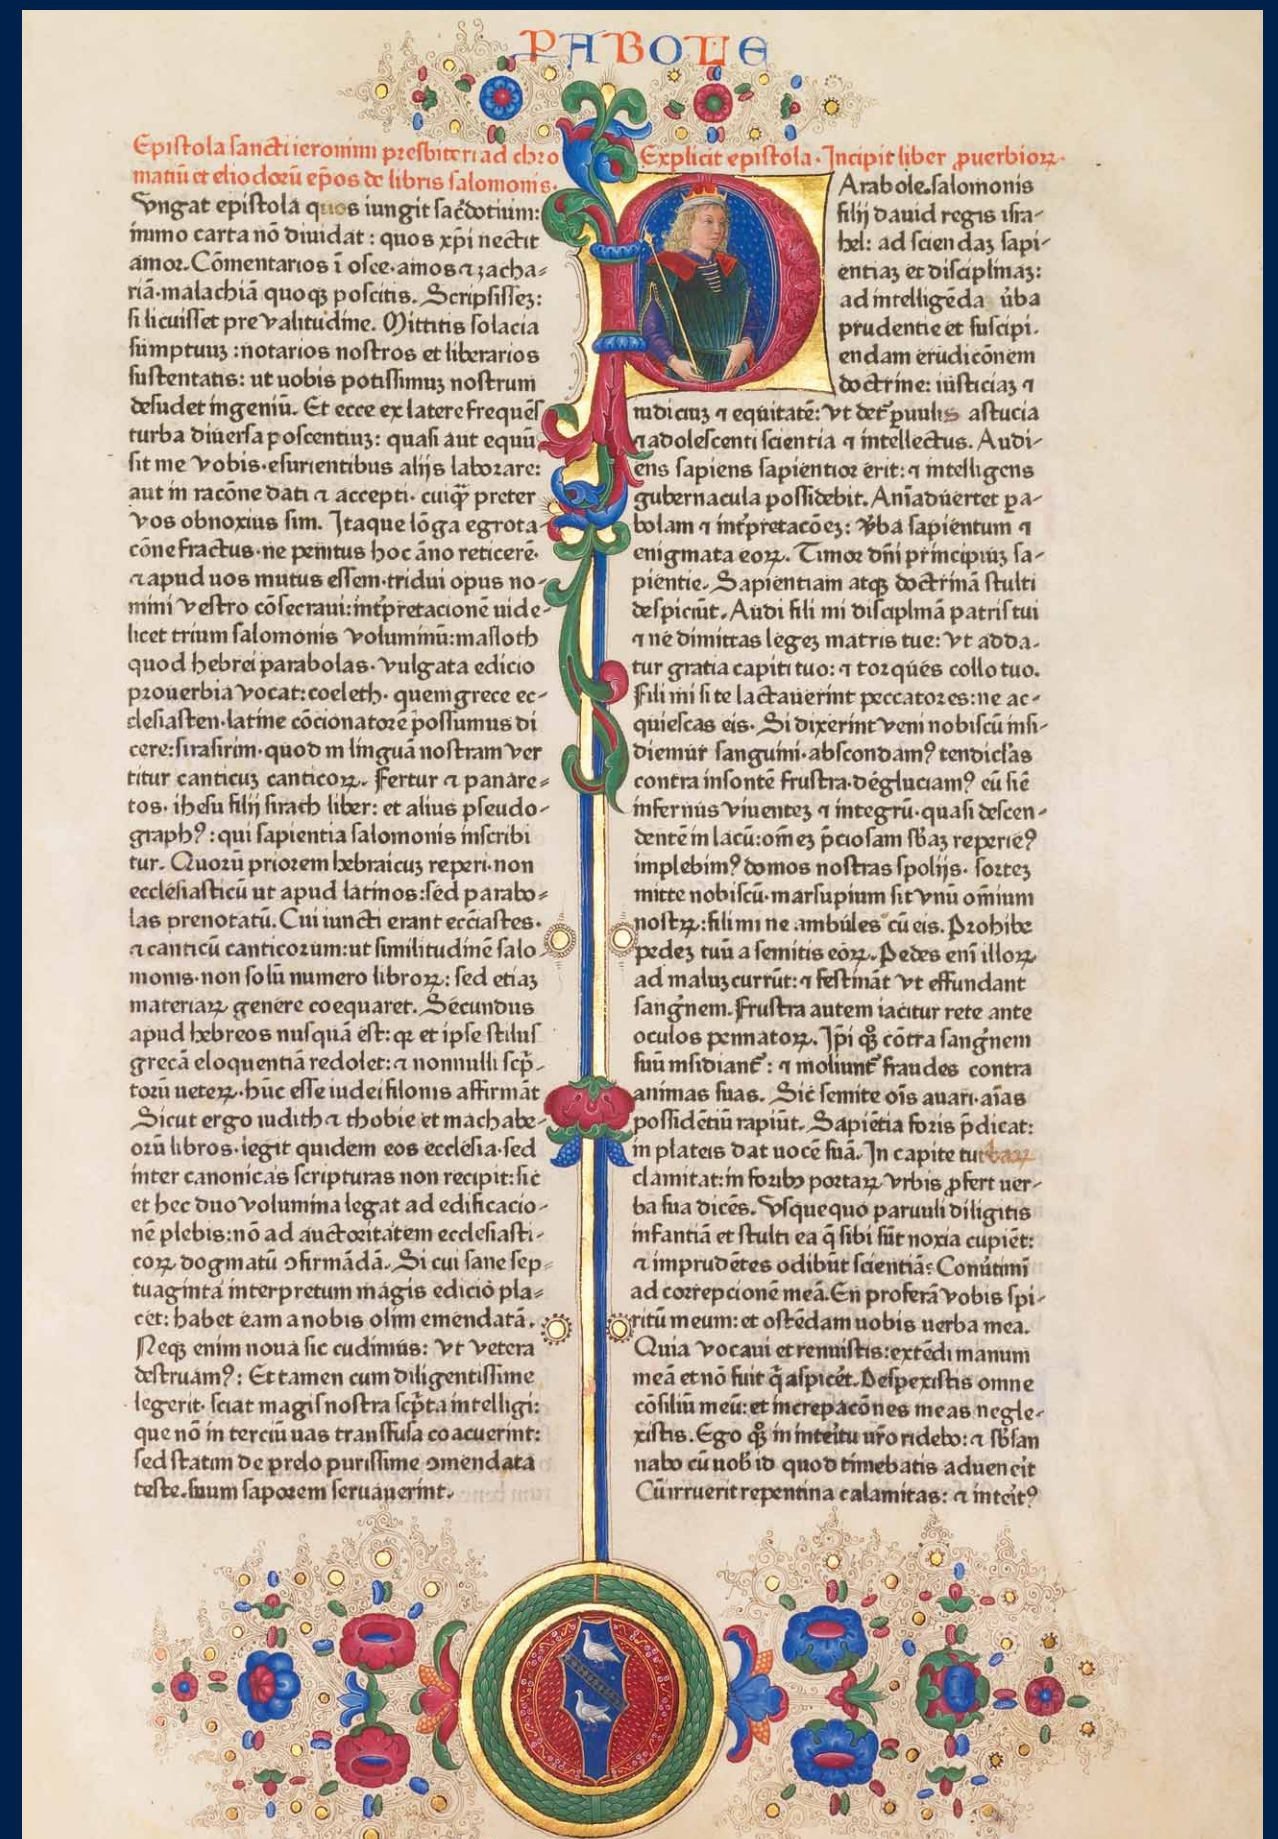 PABOLE
Epistola sancti ieronimi presbiteri ad chro
matiū et eliodorū ep̄os de libris salomonis.
Vngat epistola quos iungit sac̄dotium:
immo carta nō diuidat: quos xp̄i nectit
amor. Cōmentarios ī osce·amos ⁊ zacha⸗
riā·malachiā quoqꝫ poscitis. Scripsisseꝫ:
si licuisset pre valitudine. Mittitis solacia
sumptuuꝫ: notarios nostros et librarios
sustentatis: ut uobis potissimuꝫ nostrum
desudet ingeniū. Et ecce ex latere frequēs
turba diuersa poscentiuꝫ: quasi aut equū
sit me vobis·esurientibus alijs laborare:
aut in racōne dati ⁊ accepti· cuiqꝫ̄ preter
vos obnoxius sim. Itaque lōga egrota⸗
cōne fractus·ne penitus hoc āno reticerē·
⁊ apud uos mutus essem·tridui opus no⸗
mini vestro cōsecraui: int̄pretacionē uide⸗
licet trium salomonis voluminū: masloth
quod hebrei parabolas· vulgata edicio
prouerbia vocat: coeleth· quem grece ec⸗
clesiasten·latine cōcionatorē possumus di
cere: sirasirim·quod in linguā nostram ver
titur canticuꝫ canticoꝝ. Fertur ⁊ panare⸗
tos· ihesu filij sirach liber: et alius pseudo⸗
graphꝰ: qui sapientia salomonis inscribi
tur. Quorū priorem hebraicuꝫ reperi·non
ecclesiasticū ut apud latinos: sed parabo⸗
las prenotatū. Cui iuncti erant ecc̄iastes·
⁊ canticū canticorum: ut similitudinē salo
monis·non solū numero libroꝝ: sed etiaꝫ
materiaꝝ genere coequaret. Secundus
apud hebreos nusquā est: qꝛ et ipse stilus
grecā eloquentiā redolet: ⁊ nonnulli scp̄⸗
torū ueteꝝ·hūc esse iudei filonis affirmāt
Sicut ergo iudith ⁊ thobie et machabe⸗
orū libros·legit quidem eos ecclesia·sed
inter canonicas scripturas non recipit: sic
et hec duo volumina legat ad edificacio⸗
nē plebis: nō ad auctoritatem ecclesiasti⸗
coꝝ dogmatū ↄfirmādā. Si cui sane sep⸗
tuaginta interpretum magis edicio pla⸗
cet: habet eam a nobis olim emendatā.
Neqꝫ enim noua sic cudimus: vt vetera
destruamꝰ: Et tamen cum diligentissime
legerit· sciat magis nostra scp̄ta intelligi:
que nō in terciū uas transfusa coacuerint:
sed statim de prelo purissime ↄmendata
teste·suum saporem seruauerint.
Explicit epistola· Incipit liber ꝓuerbioꝝ·
Arabole·salomonis
filij dauid regis isra⸗
hel: ad sciendaꝫ sapi⸗
entiaꝫ et disciplinaꝫ:
ad intelligēda ūba
prudentie et suscipi·
endam erudicōnem
doctrine: iusticiaꝫ ⁊
iudiciuꝫ ⁊ equitatē: vt det̄ ꝑuulis astucia
⁊ adolescenti scientia ⁊ intellectus. Audi⸗
ens sapiens sapientior erit: ⁊ intelligens
gubernacula possidebit. Aīaduertet pa⸗
bolam ⁊ int̄pretacōeꝫ: v̄ba sapientum ⁊
enigmata eoꝝ. Timor dn̄i principiuꝫ sa⸗
pientie. Sapientiam atqꝫ doctrinā stulti
despiciūt. Audi fili mi disciplinā patris tui
⁊ ne dimittas legeꝫ matris tue: vt adda⸗
tur gratia capiti tuo: ⁊ torques collo tuo.
Fili mi si te lactauerint peccatores: ne ac⸗
quiescas eis. Si dixerint veni nobiscū insi⸗
diemur sanguini·abscondamꝰ tendiclas
contra insontē frustra·deglucíamꝰ eū sic̄
infernus viuenteꝫ ⁊ integrū·quasi descen⸗
dentē in lacū: om̄eꝫ p̄ciosam sb̄aꝫ reperieꝰ
implebimꝰ domos nostras spolijs· sorteꝫ
mitte nobiscū·marsupium sit vnū om̄ium
nostꝝ: fili mi ne ambules cū eis. Prohibe
pedeꝫ tuū a semitis eoꝝ. Pedes enī illoꝝ
ad maluꝫ currūt: ⁊ festināt vt effundant
sanḡnem. Frustra autem iacitur rete ante
oculos pennatoꝝ. Ip̄i qꝫ̄ cōtra sanḡnem
suū insidiant̄: ⁊ moliunt̄ fraudes contra
animas suas. Sic semite oīs auari·aīas
possidētiū rapiūt. Sapiētia foris p̄dicat:
in plateis dat uocē suā. In capite turbaꝝ
clamitat: in foribꝫ portaꝝ vrbis ꝓfert uer⸗
ba sua dicēs. Vsquequo paruuli diligitis
infantiā et stulti ea q̄ sibi sūt noxia cupiēt:
⁊ imprudētes odibūt scientiā: Conūtimī
ad correpcionē meā. En proferā vobis spi⸗
ritū meum: et ostēdam uobis uerba mea.
Quia vocaui et renuistis: extēdi manum
meā et nō fuit q̄ aspicēt. Despexistis omne
cōsiliū meū: et increpacōnes meas negle⸗
xistis. Ego qꝫ̄ in inteītu ur̄o ridebo: ⁊ sb̄san
nabo cū uob̄ id quod timebatis aduenerit
Cū irruerit repentina calamitas: ⁊ inteītꝰ